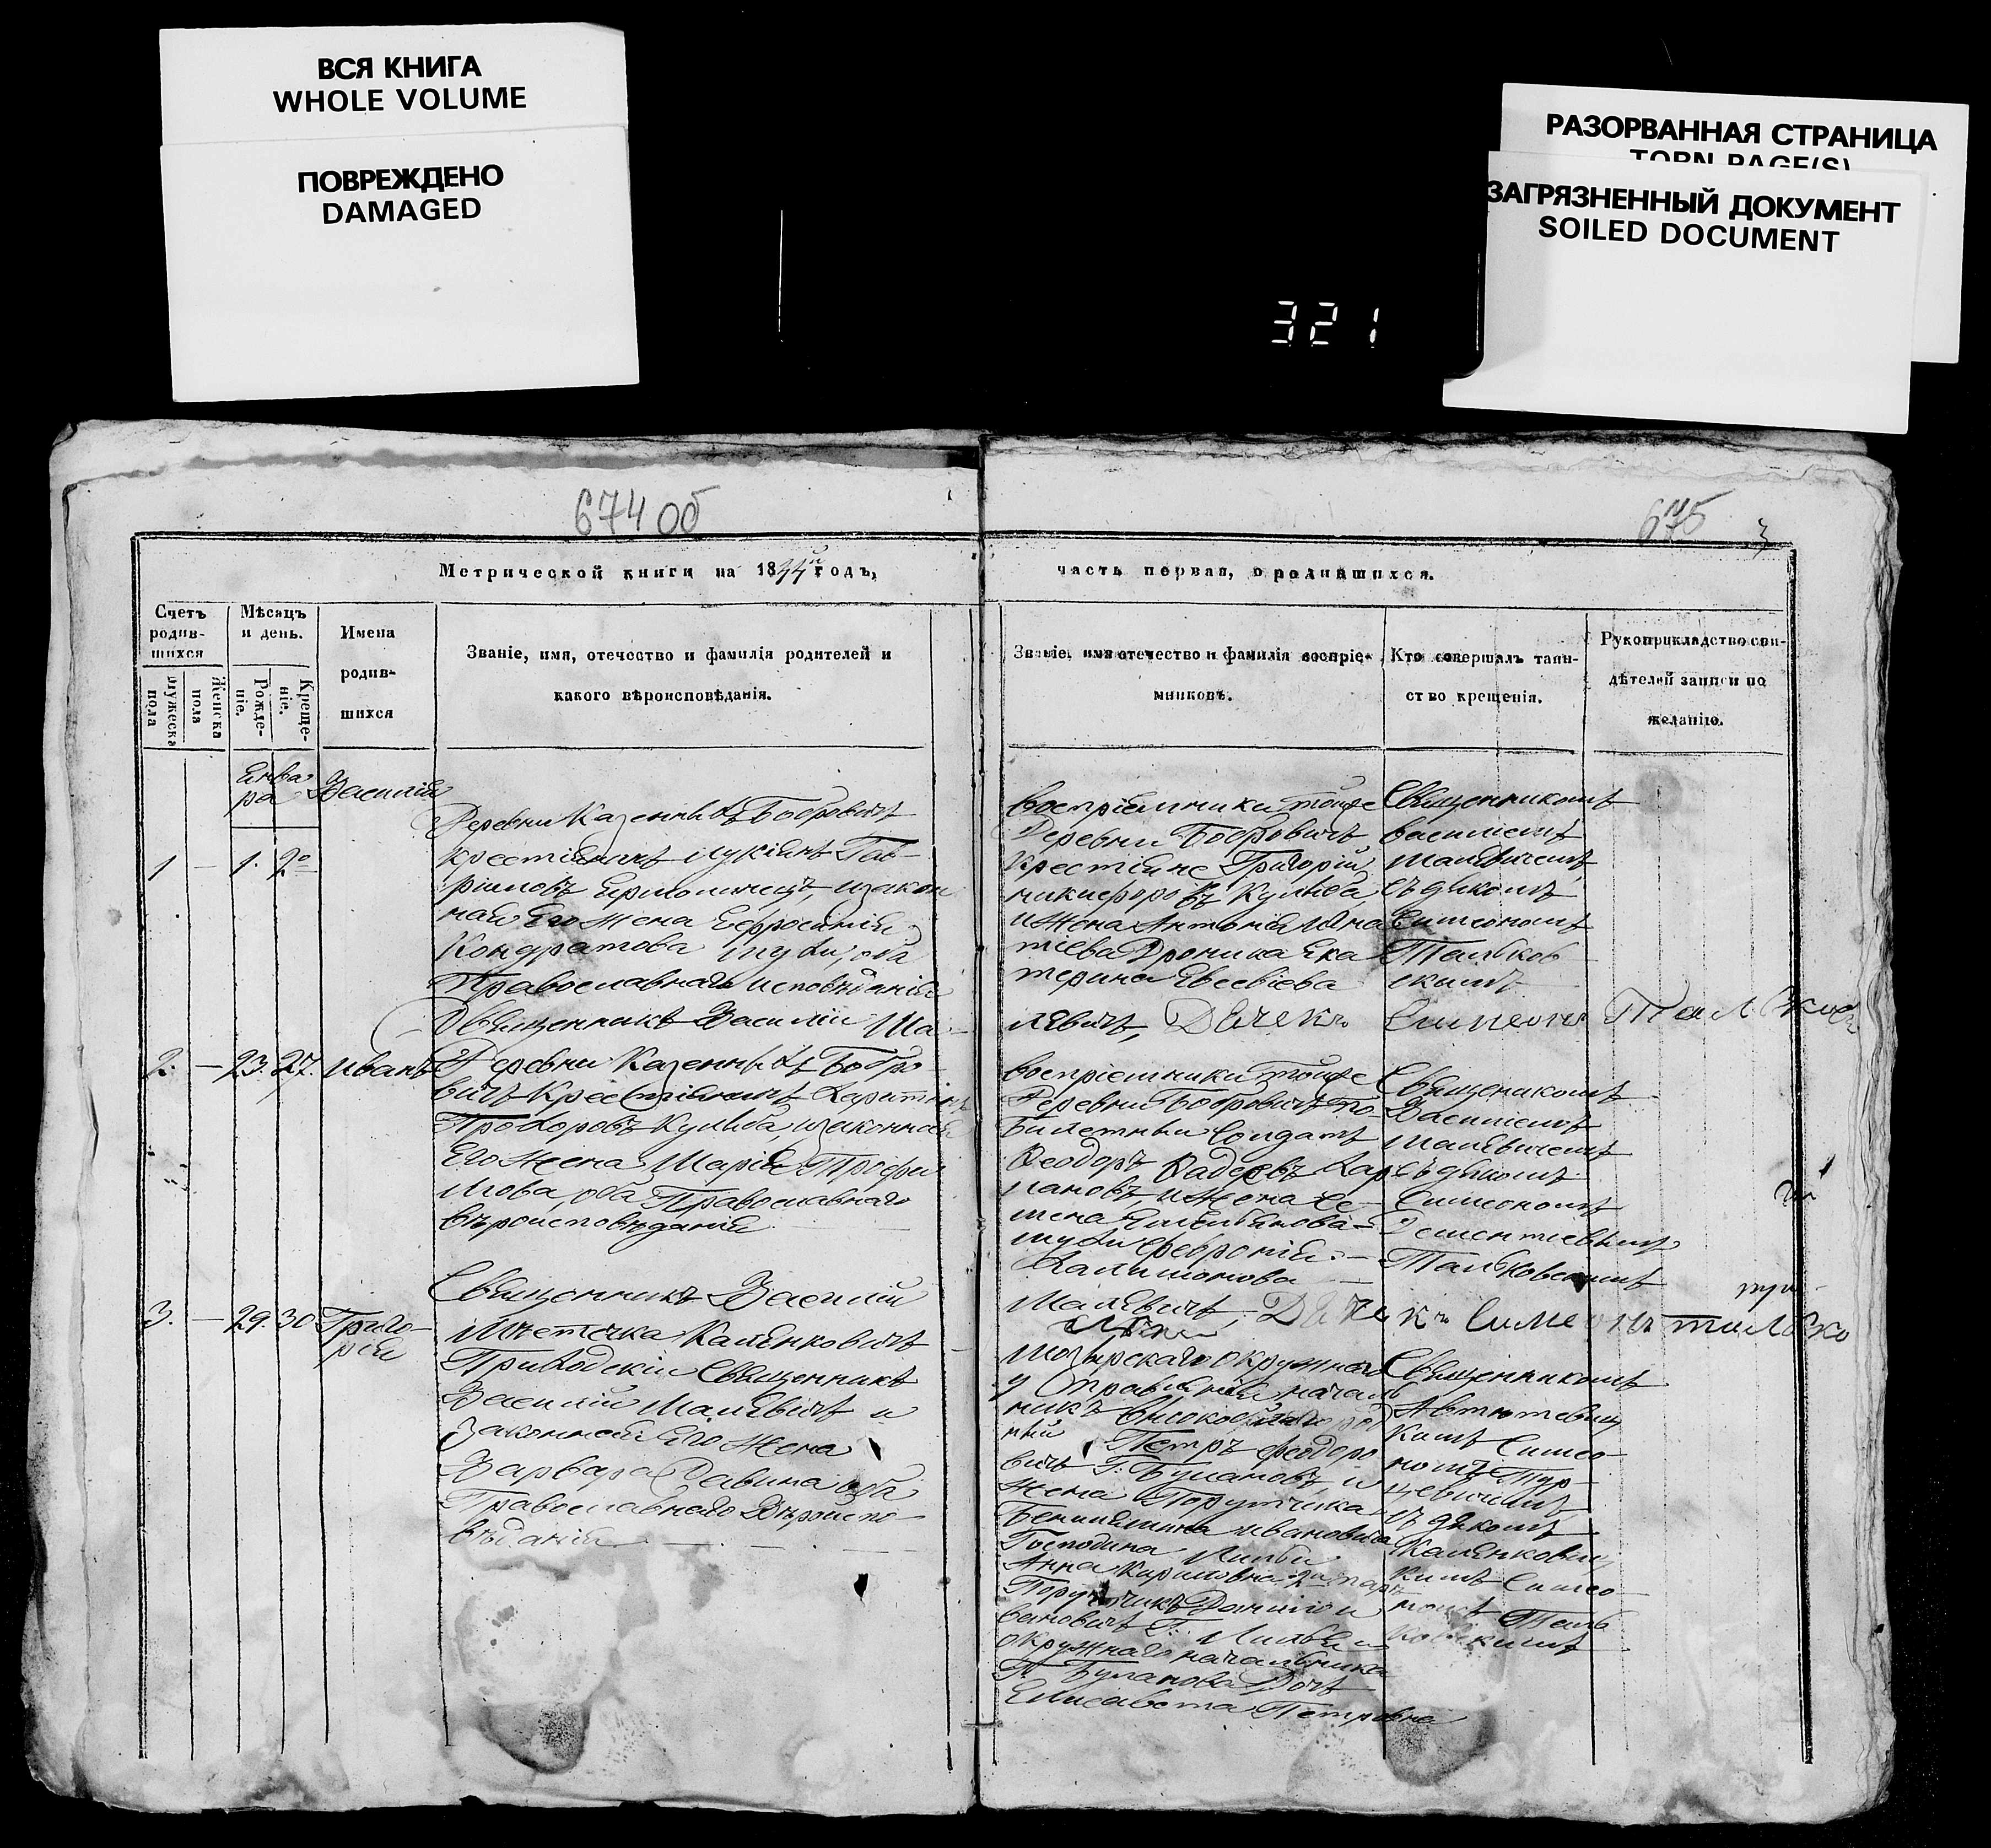 ВСЯ КНИГА
WHOLE VOLUME
ПОВРЕЖДЕНО
DAMAGED
РАЗОРВАННАЯ СТРАНИЦА
TORN PAGE(S)
ЗАГРЯЗНЕННЫЙ ДОКУМЕНТ
SOILED DOCUMENT
321
674 об
675
3
Метрической книги на 1844й годъ,
часть первая, о родившихся.
Счетъ
родив-
шихся
Мужеска
пола
Женска
пола
Мѣсяцъ
и день.
Рожде-
ніе.
Креще-
ніе.
Имена
родив-
шихся
Званіе, имя, отечество и фамилія родителей и
какого вѣроисповѣданія.
Званіе, имя отечество и фамилія воспріе-
мниковъ.
Кто совершалъ таин-
ство крещенія.
Рукоприкладство сви-
дѣтелей записи по
желанію.
Енва
ра
1 — 1. 2о
Василій
Деревни Казенныхъ Бобровичъ
крестіянинъ Лукіянъ Гав-
ріиловъ Ермоленецъ, изакон
ная Его Жена Ефросинія
Кондратова оба
Православнаго исповѣданія
Воспріемники тойже
Деревни Бобровичъ
Крестіяне Григорій
никифоровъ Кульба,
и Жена Антонія Игна
тіева Дроника Ека
терина Евсевіева
Священникомъ
Василіемъ
Малевичемъ
съ дякомъ
Симеономъ
Тальков
скимъ
Священникъ Василій Ма-
лявичъ, Дячекъ Симеонъ Талько
2. — 23. 27. Иванъ
Деревни Казенныхъ Бобро
вичъ Крестіянинъ Харитонъ
Прохоровъ Кульба, изаконная
Его жена Марія Трофи
мова, оба Православнаго
вѣроисповѣданія
Воспріемники тойже
Деревни Бобровичъ
Билетный Солдатъ
Феодоръ Фадеевъ Кар
пановъ, и Жена Се-
мена
Феброніи
Халимонова
Священикомъ
Василіемъ
Малевичемъ
съ дякомъ
Симеономъ
Тальковскимъ
Священникъ Василій
Малявичъ, Дячекъ Симеонъ талько
3. — 29. 30 Григо-
рій
Мѣстечка Каленковичъ
Приходскій Священникъ
Василій Малевичъ и
Законная Его Жена
Варвара Савина оба
Православнаго Вѣроиспо-
вѣданія
Мозырскаго окружнаго
Управленія началь
никъ Высокоблагород
ный Петръ Феодоро
вичъ Г. Булановъ, и
жена Порутчика
Бениямина Ивановича
Господина
Анна Кириловна 2й пары
Порутчикъ Данило и
вановичъ Г.
окружнаго начальника
Г. Буланова Дочь
Елисавета Петровна
Священникомъ
Автютевиц
кимъ Симео
номъ Тур
цевичемъ,
съ дякомъ
Каленковиц
кимъ Симео
номъ Таль
ковскимъ